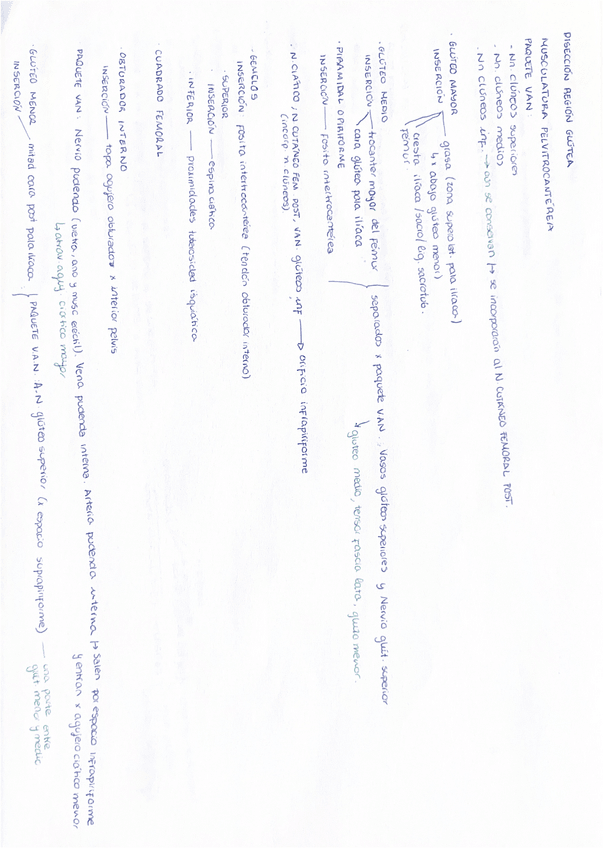 DISECCIÓN REGIÓN GLÚTEA
MUSCULATURA PELVITROCANTÉREA
PAQUETE VAN:
- Nn clúneos superiores
- Nn clúneos medios
- Nn clúneos inf. → aún se conservan ↦ se incorporan al N CUTÁNEO FEMORAL POST.
· GLÚTEO MAYOR
INSERCIÓN grasa (zona superolat. pala ilíaca)
↳ abajo glúteo menor)
cresta ilíaca / sacro / lig. sacrotub.
fémur.
· GLÚTEO MEDIO
INSERCIÓN trocánter mayor del fémur
cara glútea pala ilíaca
separados x paquete VAN., Vasos glúteos superiores y Nervio glút. superior
glúteo medio, tensor fascia lata, glúteo menor.
· PIRAMIDAL O PIRIFORME
INSERCIÓN fosita intertrocantérea
· N CIÁTICO, N CUTÁNEO FEM POST, VAN glúteos inf → orificio infrapiriforme
(incorp n clúneos)
· GEMELOS
INSERCIÓN: fosita intertrocantérea (tendón obturador interno)
· SUPERIOR
INSERCIÓN espina ciática
· INFERIOR proximidades tuberosidad isquiática
· CUADRADO FEMORAL
· OBTURADOR INTERNO
INSERCIÓN tapa agujero obturador x interior pelvis
PAQUETE VAN: Nervio pudendo (uretra, ano y musc eréctil). Vena pudenda interna. Arteria pudenda interna ↦ Salen por espacio infrapiriforme
y entran x agujero ciático menor
ciático mayor
· GLÚTEO MENOR
INSERCIÓN mitad cara post pala ilíaca. PAQUETE VAN: A.N glúteo superior, (x espacio suprapiriforme) — una parte entre
glút menor y medio